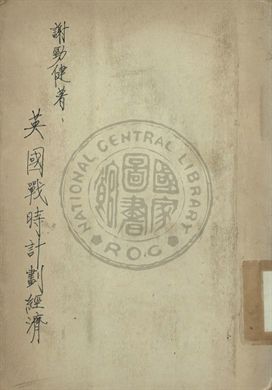 謝勁健著，
英國戰時計劃經濟
NATIONAL CENTRAL LIBRARY
R.O.C
國家圖書館